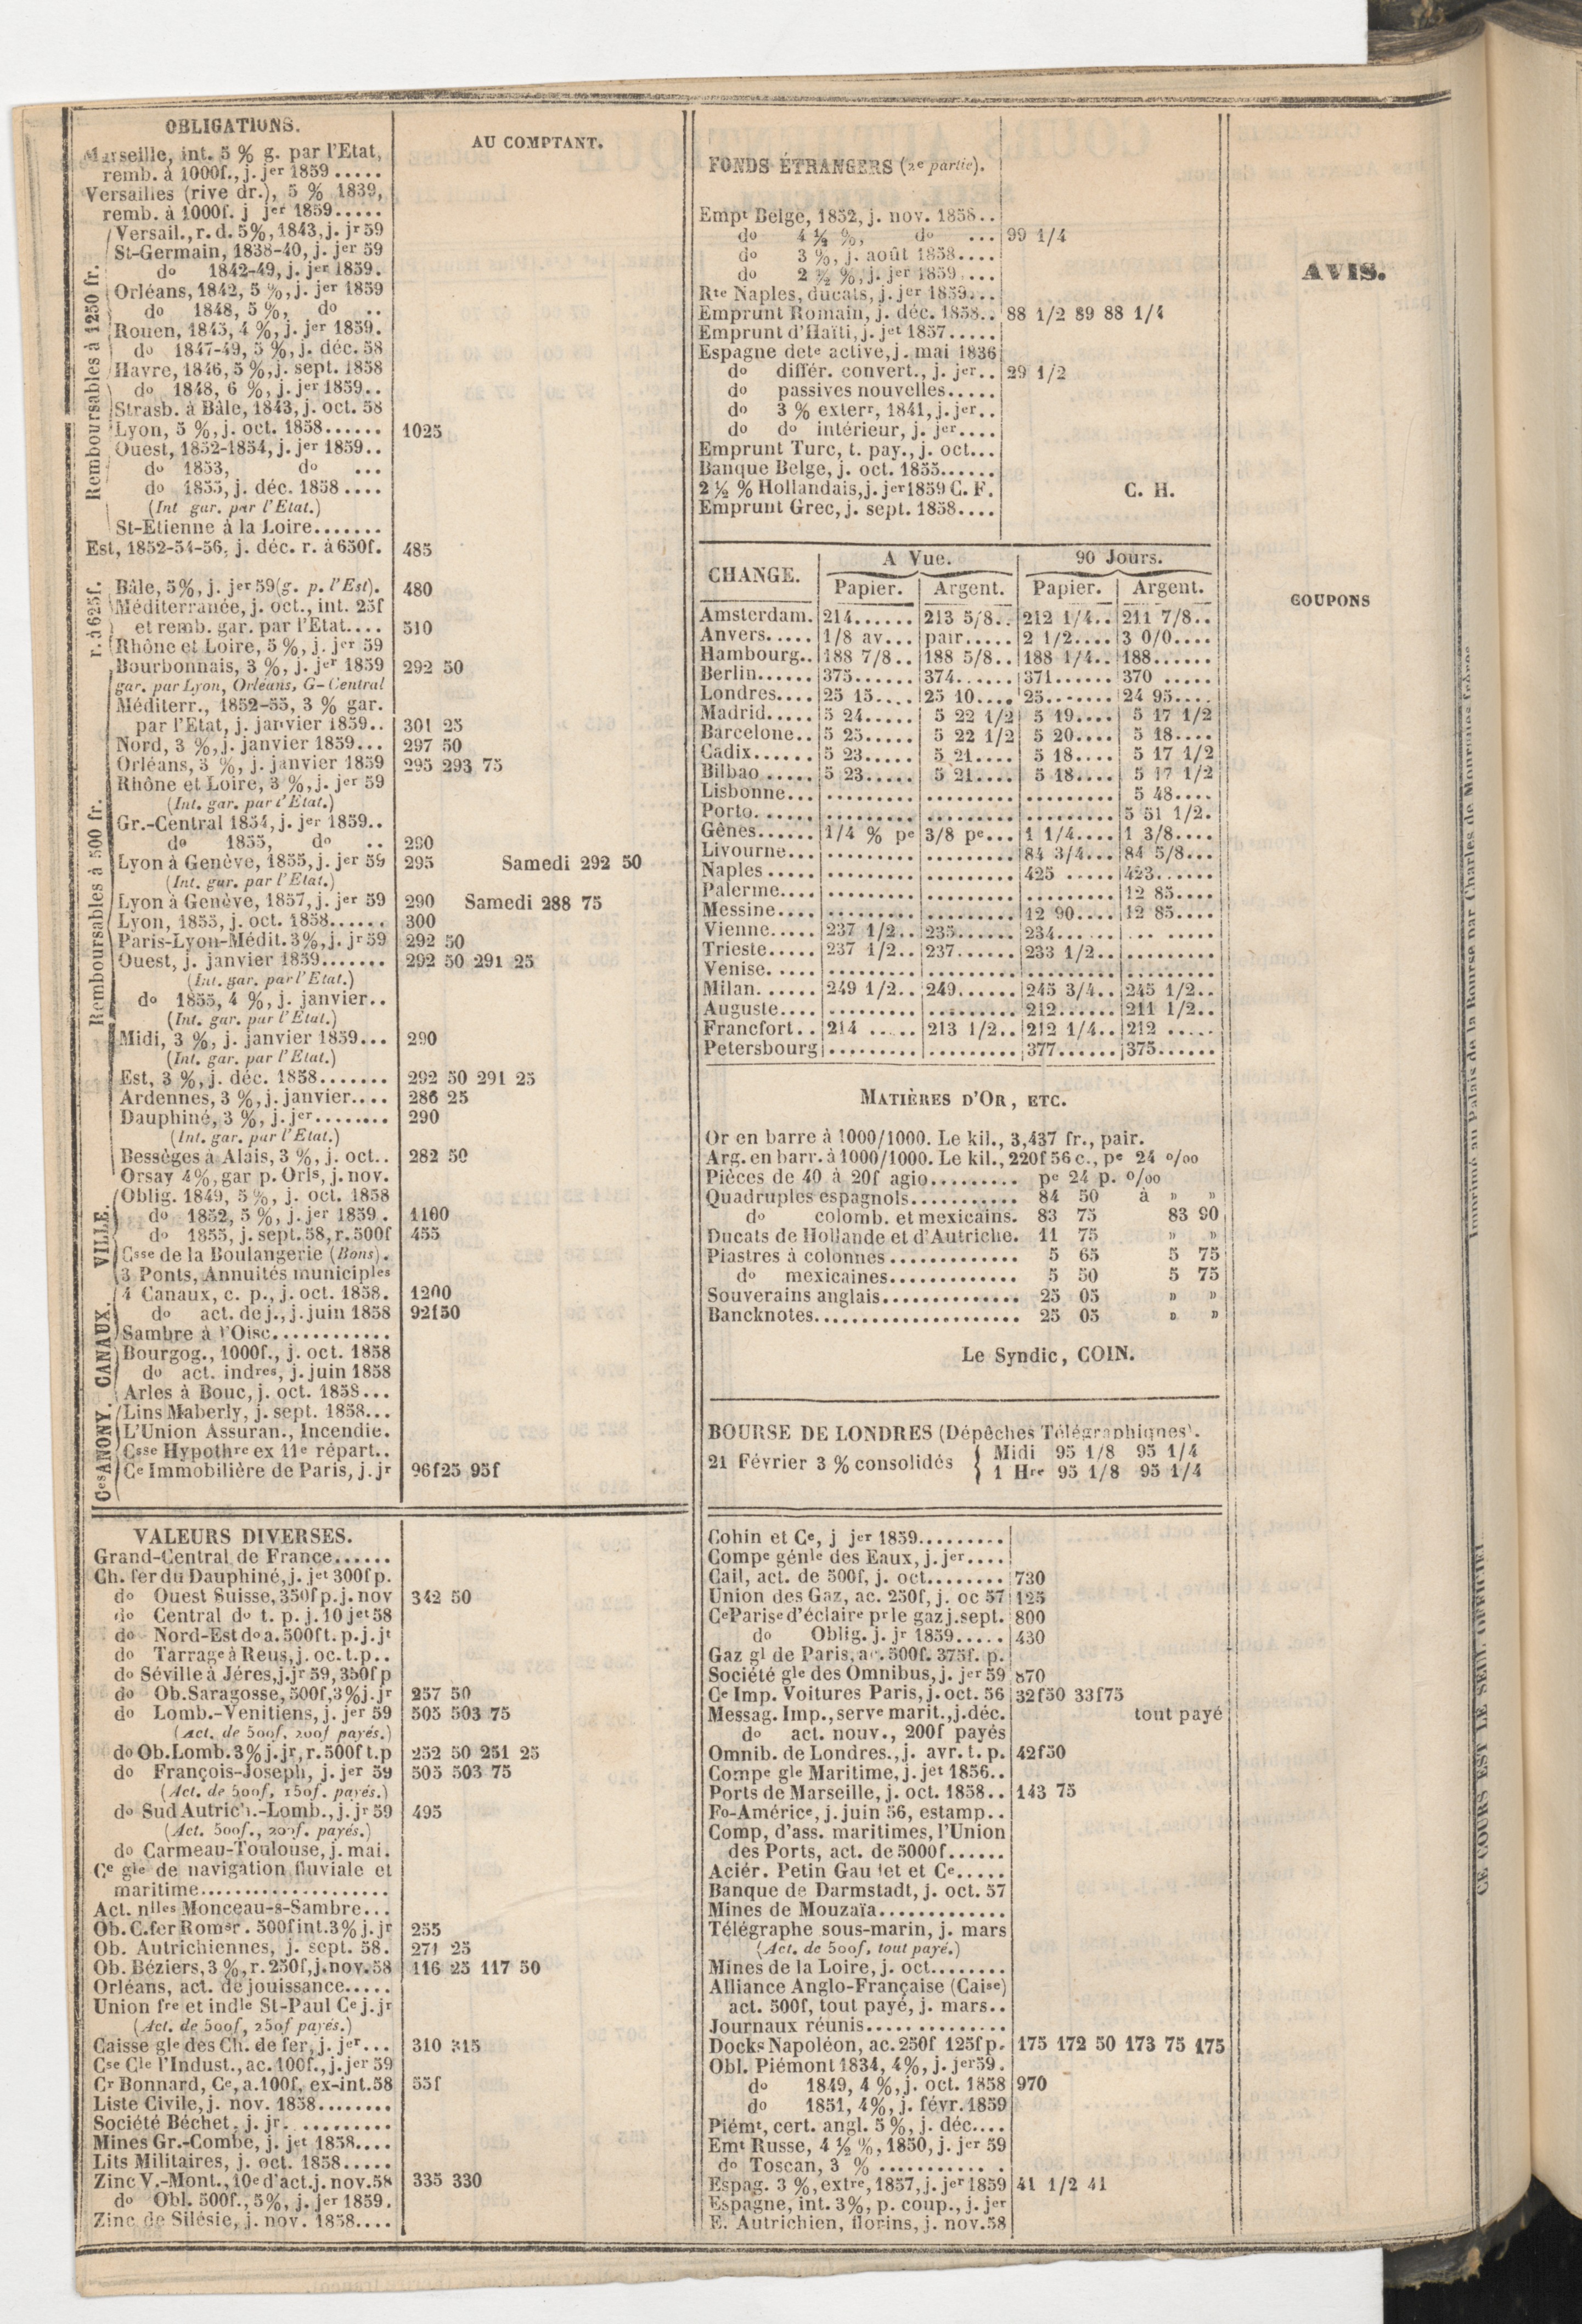 OBLIGATIONS.
AU COMPTANT.
Marseille, int. 5 % g. par l'Etat,
remb. à 1000f., j. jer 1859.....
Versailles (rive dr.), 5 % 1839,
remb. à 1000f. j jer 1859.....
Remboursables à 1250 fr.
Versail., r. d. 5%, 1843, j. jr 59
St-Germain, 1838-40, j. jer 59
do 1842-49, j. jer 1859.
Orléans, 1842, 5 %, j. jer 1859
do 1848, 5 %, do ..
Rouen, 1845, 4 %, j. jer 1859.
do 1847-49, 5 %, j. déc. 58
Havre, 1846, 5 %, j. sept. 1858
do 1848, 6 %, j. jer 1859..
Strasb. à Bâle, 1843, j. oct. 58
Lyon, 5 %, j. oct. 1858...... 1025
Ouest, 1852-1854, j. jer 1859..
do 1853, do ...
do 1855, j. déc. 1858....
(Int gar. par l'Etat.)
St-Etienne à la Loire.......
Est, 1852-54-56, j. déc. r. à 650f. 485
r. à 625f.
Bâle, 5%, j. jer 59 (g. p. l'Est). 480
Méditerranée, j. oct., int. 25f
et remb. gar. par l'Etat.... 510
Rhône et Loire, 5 %, j. jer 59
Remboursables à 500 fr.
Bourbonnais, 3 %, j. jer 1859 292 50
gar. par Lyon, Orléans, G-Central
Méditerr., 1852-55, 3 % gar.
par l'Etat, j. janvier 1859.. 301 25
Nord, 3 %, j. janvier 1859... 297 50
Orléans, 3 %, j. janvier 1859 295 293 75
Rhône et Loire, 3 %, j. jer 59
(Int. gar. par l'Etat.)
Gr.-Central 1854, j. jer 1859..
do 1855, do .. 290
Lyon à Genève, 1855, j. jer 59 295 Samedi 292 50
(Int. gar. par l'Etat.)
Lyon à Genève, 1857, j. jer 59 290 Samedi 288 75
Lyon, 1855, j. oct. 1858...... 300
Paris-Lyon-Médit. 3%, j. jr 59 292 50
Ouest, j. janvier 1859....... 292 50 291 25
(Int. gar. par l'Etat.)
do 1855, 4 %, j. janvier..
(Int. gar. par l'Etat.)
Midi, 3 %, j. janvier 1859... 290
(Int. gar. par l'Etat.)
Est, 3 %, j. déc. 1858....... 292 50 291 25
Ardennes, 3 %, j. janvier.... 286 25
Dauphiné, 3 %, j. jer........ 290
(Int. gar. par l'Etat.)
Bessèges à Alais, 3 %, j. oct.. 282 50
Orsay 4%, gar p. Orls, j. nov.
VILLE.
Oblig. 1849, 5 %, j. oct. 1858
do 1852, 5 %, j. jer 1859. 1100
do 1855, j. sept. 58, r. 500f 455
Csse de la Boulangerie (Bons).
3 Ponts, Annuités municiples
CANAUX.
4 Canaux, c. p., j. oct. 1858. 1200
do act. de j., j. juin 1858 92f50
Sambre à l'Oise............
Bourgog., 1000f., j. oct. 1858
do act. indres, j. juin 1858
Arles à Bouc, j. oct. 1858...
Ces ANONY.
Lins Maberly, j. sept. 1858...
L'Union Assuran., Incendie.
Csse Hypothre ex 11e répart..
Ce Immobilière de Paris, j. jr 96f25 95f
VALEURS DIVERSES.
Grand-Central de France......
Ch. fer du Dauphiné, j. jet 300f p.
do Ouest Suisse, 350f p. j. nov 342 50
do Central do t. p. j. 10 jet 58
do Nord-Est do a. 500f t. p. j. jt
do Tarrage à Reus, j. oc. t. p..
do Séville à Jéres, j. jr 59, 350f p
do Ob. Saragosse, 500f, 3% j. jr 257 50
do Lomb.-Venitiens, j. jer 59 505 503 75
(Act. de 500f, 200f payés.)
do Ob. Lomb. 3% j. jr, r. 500f t. p 252 50 251 25
do François-Joseph, j. jer 59 505 503 75
(Act. de 500f, 150f. payés.)
do Sud Autrich.-Lomb., j. jr 59 495
(Act. 500f., 200f. payés.)
do Carmeau-Toulouse, j. mai.
Ce gle de navigation fluviale et
maritime....................
Act. nlles Monceau-s-Sambre...
Ob. C. fer Romsr. 500f int. 3% j. jr 255
Ob. Autrichiennes, j. sept. 58. 271 25
Ob. Béziers, 3 %, r. 250f, j. nov. 58 116 25 117 50
Orléans, act. de jouissance.....
Union fre et indle St-Paul Ce j. jr
(Act. de 500f, 250f payés.)
Caisse gle des Ch. de fer, j. jer... 310 315
Cse Cle l'Indust., ac. 100f., j. jer 59
Cr Bonnard, Ce, a. 100f, ex-int. 58 55f
Liste Civile, j. nov. 1858........
Société Béchet, j. jr. .........
Mines Gr.-Combe, j. jet 1858....
Lits Militaires, j. oct. 1858.....
Zinc V.-Mont., 10e d'act. j. nov. 58 335 330
do Obl. 500f., 5%, j. jer 1859.
Zinc de Silésie, j. nov. 1858....
FONDS ÉTRANGERS (2e partie).
Empt Belge, 1852, j. nov. 1858..
do 4 ½ %, do ... 99 1/4
do 3 %, j. août 1858....
do 2 ½ %, j. jer 1859....
Rte Naples, ducats, j. jer 1859...
Emprunt Romain, j. déc. 1858.. 88 1/2 89 88 1/4
Emprunt d'Haïti, j. jet 1857.....
Espagne dete active, j. mai 1836
do différ. convert., j. jer.. 29 1/2
do passives nouvelles.....
do 3 % exterr, 1841, j. jer..
do do intérieur, j. jer....
Emprunt Turc, t. pay., j. oct...
Banque Belge, j. oct. 1855......
2 ½ % Hollandais, j. jer 1859 C. F. C. H.
Emprunt Grec, j. sept. 1858....
CHANGE. A Vue. 90 Jours.
Papier. Argent. Papier. Argent.
Amsterdam. 214...... 213 5/8.. 212 1/4.. 211 7/8..
Anvers..... 1/8 av... pair..... 2 1/2.... 3 0/0....
Hambourg.. 188 7/8.. 188 5/8.. 188 1/4.. 188......
Berlin...... 375...... 374...... 371...... 370 .....
Londres.... 25 15.... 25 10.... 25....... 24 95....
Madrid..... 5 24..... 5 22 1/2 5 19.... 5 17 1/2
Barcelone.. 5 25..... 5 22 1/2 5 20.... 5 18....
Cadix...... 5 23..... 5 21.... 5 18.... 5 17 1/2
Bilbao...... 5 23..... 5 21.... 5 18.... 5 17 1/2
Lisbonne... ......... ......... ......... 5 48....
Porto...... ......... ......... ......... 5 51 1/2.
Gênes...... 1/4 % pe 3/8 pe... 1 1/4.... 1 3/8....
Livourne... ......... ......... 84 3/4... 84 5/8...
Naples..... ......... ......... 425 ..... 423......
Palerme.... ......... ......... ......... 12 85....
Messine.... ......... ......... 12 90.... 12 85....
Vienne..... 237 1/2.. 235...... 234...... ... .....
Trieste..... 237 1/2.. 237...... 233 1/2.. .........
Venise..... ......... ......... ......... .........
Milan...... 249 1/2.. 249...... 245 3/4.. 245 1/2..
Auguste.... ......... ......... 212...... 211 1/2..
Francfort.. 214 ..... 213 1/2.. 212 1/4.. 212 .....
Petersbourg ......... ......... 377...... 375......
MATIÈRES D'OR, ETC.
Or en barre à 1000/1000. Le kil., 3,437 fr., pair.
Arg. en barr. à 1000/1000. Le kil., 220f 56 c., pe 24 o/oo
Pièces de 40 à 20f agio......... pe 24 p. o/oo
Quadruples espagnols........... 84 50 à » »
do colomb. et mexicains. 83 75 83 90
Ducats de Hollande et d'Autriche. 11 75 » »
Piastres à colonnes............. 5 65 5 75
do mexicaines............. 5 50 5 75
Souverains anglais.............. 25 05 » »
Bancknotes..................... 25 05 » »
Le Syndic, COIN.
BOURSE DE LONDRES (Dépêches Télégraphiques).
21 Février 3 % consolidés { Midi 95 1/8 95 1/4
1 Hre 95 1/8 95 1/4
Cohin et Ce, j jer 1859.........
Compe génle des Eaux, j. jer....
Cail, act. de 500f, j. oct........ 730
Union des Gaz, ac. 250f, j. oc 57 125
Ce Parise d'éclaire pr le gaz j. sept. 800
do Oblig. j. jr 1859..... 430
Gaz gl de Paris, ac. 500f. 375f. p.
Société gle des Omnibus, j. jer 59 870
Ce Imp. Voitures Paris, j. oct. 56 32f50 33f75
Messag. Imp., serve marit., j. déc. tout payé
do act. nouv., 200f payés
Omnib. de Londres., j. avr. t. p. 42f50
Compe gle Maritime, j. jet 1856..
Ports de Marseille, j. oct. 1858.. 143 75
Fo-Américe, j. juin 56, estamp..
Comp, d'ass. maritimes, l'Union
des Ports, act. de 5000f......
Aciér. Petin Gau det et Ce.....
Banque de Darmstadt, j. oct. 57
Mines de Mouzaïa.............
Télégraphe sous-marin, j. mars
(Act. de 500f, tout payé.)
Mines de la Loire, j. oct........
Alliance Anglo-Française (Caise)
act. 500f, tout payé, j. mars..
Journaux réunis...............
Docks Napoléon, ac. 250f 125f p. 175 172 50 173 75 175
Obl. Piémont 1834, 4%, j. jer 59.
do 1849, 4 %, j. oct. 1858 970
do 1851, 4%, j. févr. 1859
Piémt, cert. angl. 5 %, j. déc....
Emt Russe, 4 ½ %, 1850, j. jer 59
do Toscan, 3 % ............
Espag. 3 %, extre, 1857, j. jer 1859 41 1/2 41
Espagne, int. 3%, p. coup., j. jer
E. Autrichien, florins, j. nov. 58
AVIS.
COUPONS
Imprimé au Palais de la Bourse par Charles de Mourgues frères
CE COURS EST LE SEUL OFFICIEL